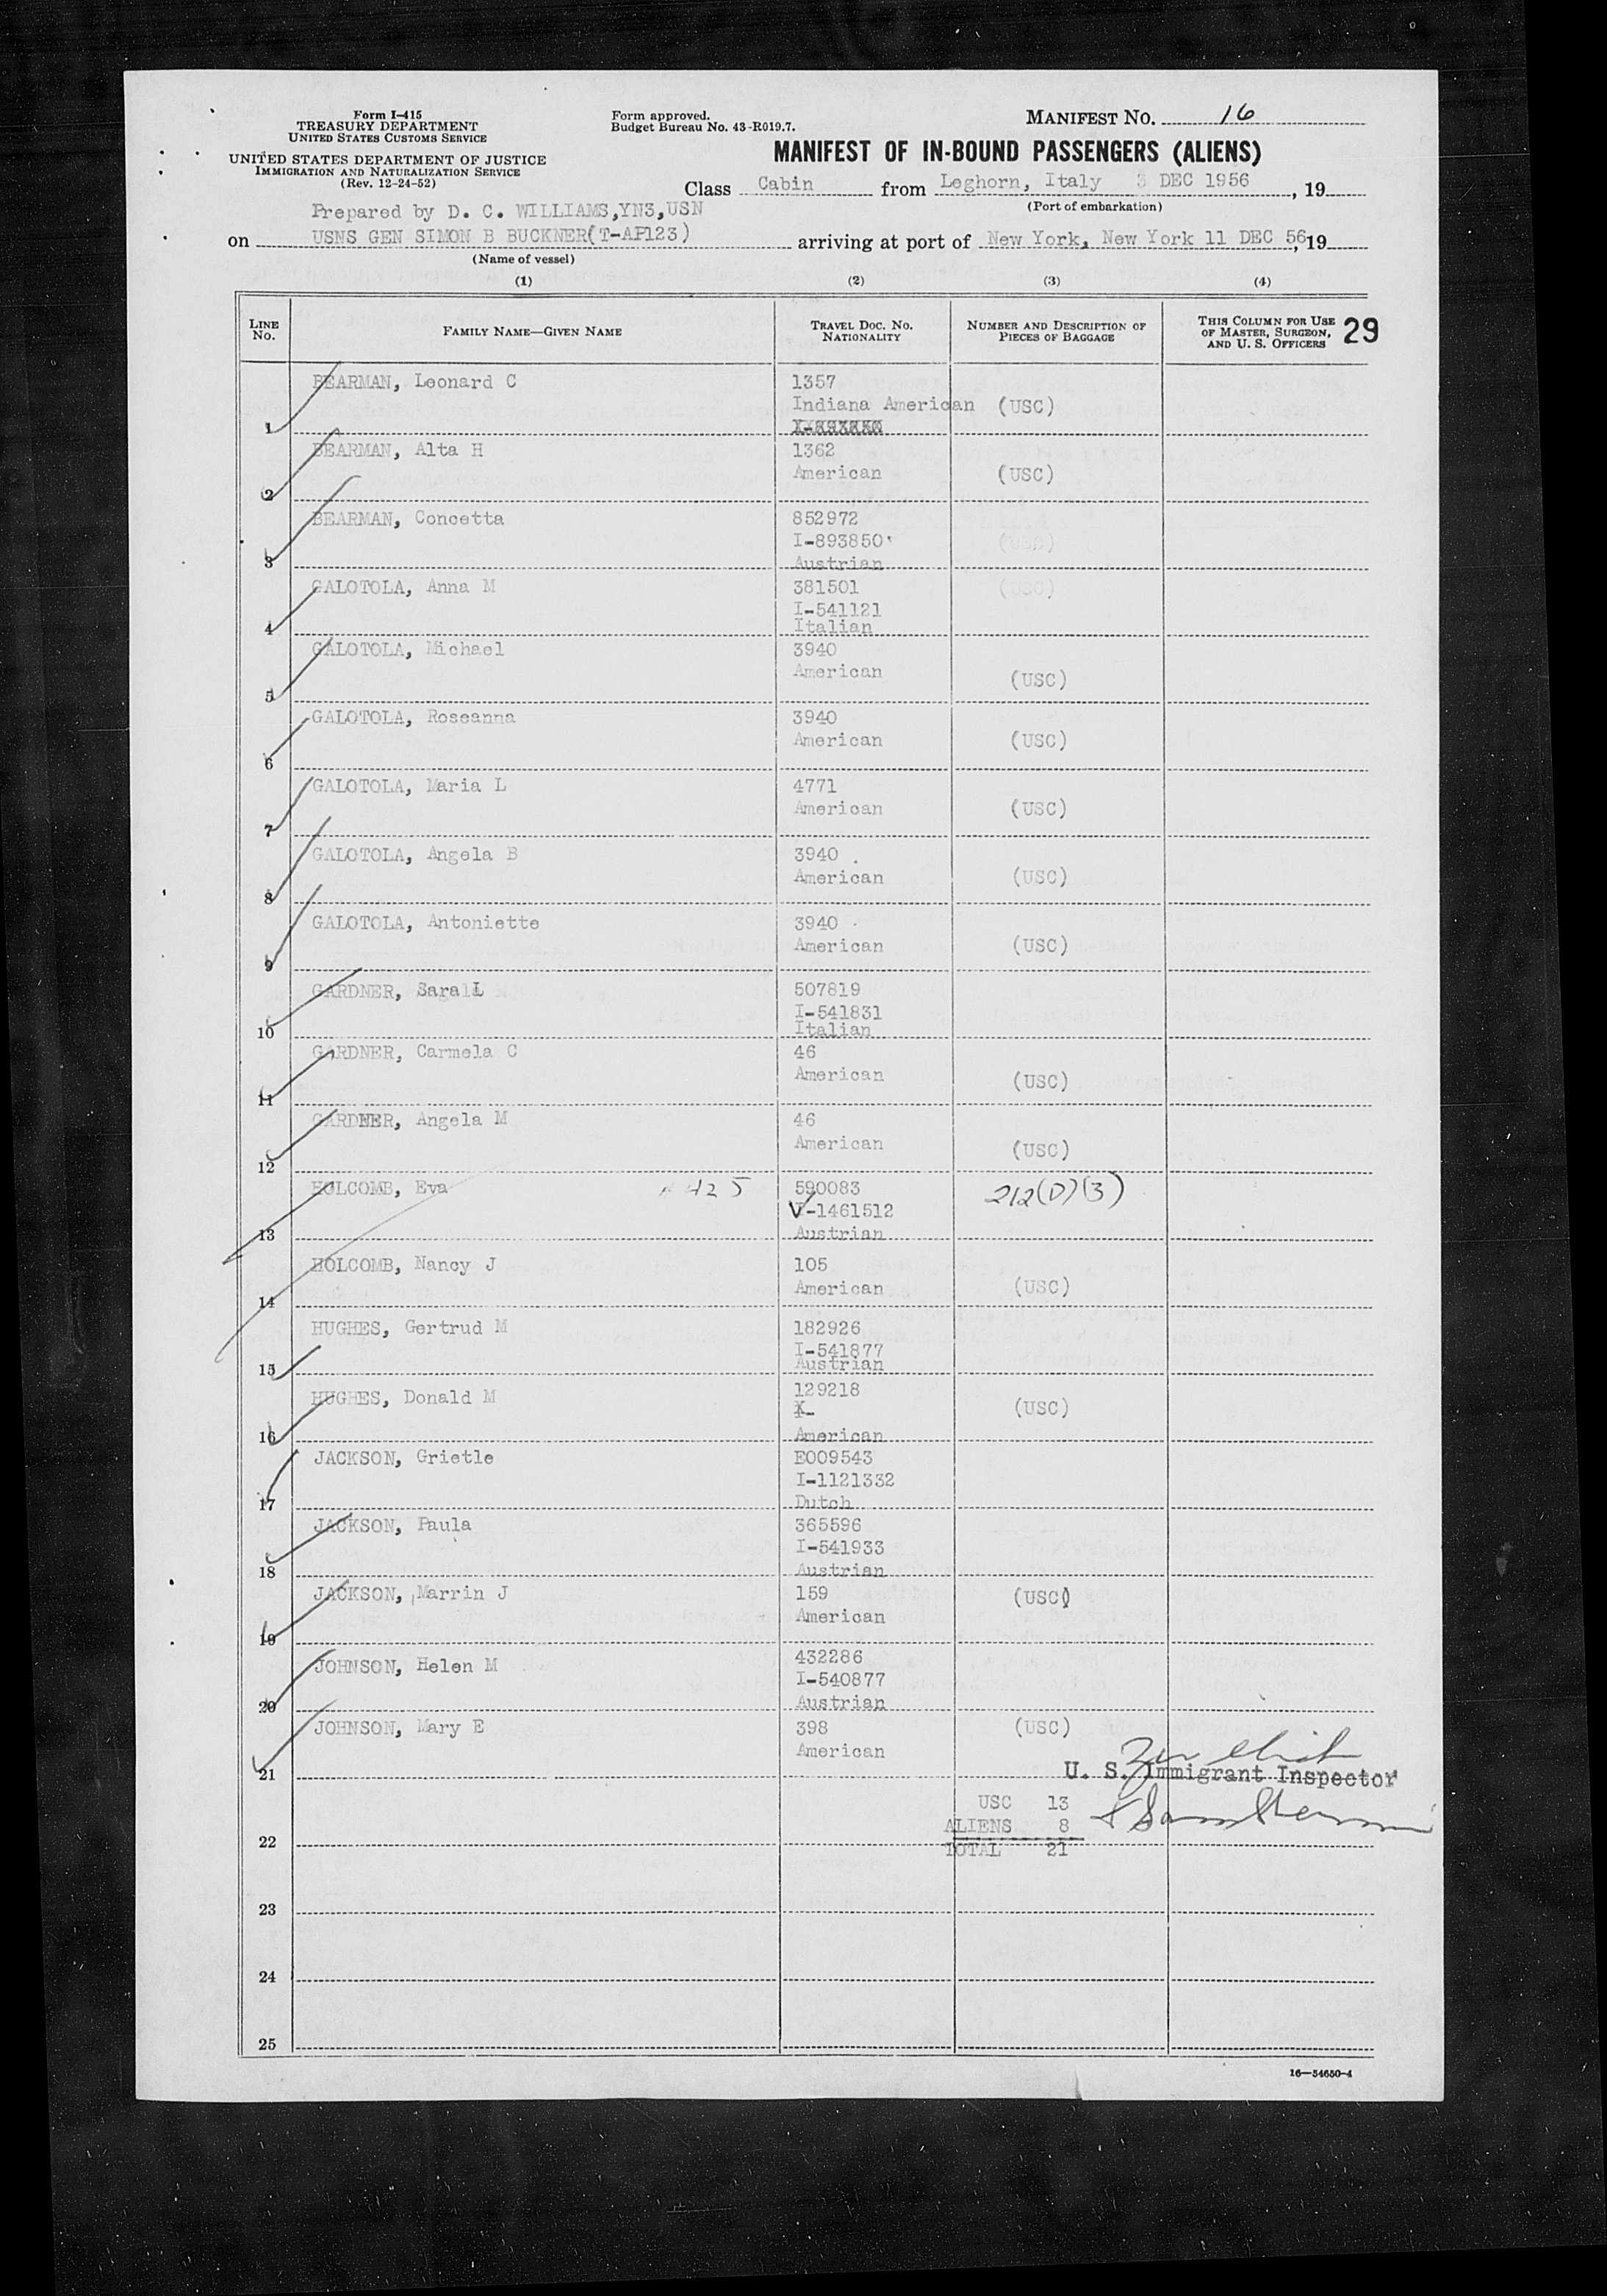 Form I-415
TREASURY DEPARTMENT
UNITED STATES CUSTOMS SERVICE
UNITED STATES DEPARTMENT OF JUSTICE
IMMIGRATION AND NATURALIZATION SERVICE
(Rev. 12-24-52)
Form approved.
Budget Bureau No. 43-R019.7.
MANIFEST NO. 16
MANIFEST OF IN-BOUND PASSENGERS (ALIENS)
Class Cabin from Leghorn, Italy 3 DEC 1956, 19
(Port of embarkation)
Prepared by D. C. WILLIAMS,YN3,USN
on USNS GEN SIMON B BUCKNER(T-AP123) arriving at port of New York, New York 11 DEC 56, 19
(Name of vessel)
(1) (2) (3) (4)
LINE NO. FAMILY NAME—GIVEN NAME TRAVEL DOC. NO. NATIONALITY NUMBER AND DESCRIPTION OF PIECES OF BAGGAGE THIS COLUMN FOR USE OF MASTER, SURGEON, AND U. S. OFFICERS 29
BEARMAN, Leonard C 1357
Indiana American (USC)
1
BEARMAN, Alta H 1362
American (USC)
2
BEARMAN, Concetta 852972
I-893850
3 Austrian
GALOTOLA, Anna M 381501
I-541121
4 Italian
GALOTOLA, Michael 3940
American (USC)
5
GALOTOLA, Roseanna 3940
American (USC)
6
GALOTOLA, Maria L 4771
American (USC)
7
GALOTOLA, Angela B 3940
American (USC)
8
GALOTOLA, Antoniette 3940
American (USC)
9
GARDNER, Sara L 507819
I-541831
10 Italian
GARDNER, Carmela C 46
American (USC)
11
GARDNER, Angela M 46
American (USC)
12
HOLCOMB, Eva 425 590083 212(D)(3)
V-1461512
13 Austrian
HOLCOMB, Nancy J 105
American (USC)
14
HUGHES, Gertrud M 182926
I-541877
15 Austrian
HUGHES, Donald M 129218
(USC)
16 American
JACKSON, Grietle E009543
I-1121332
17 Dutch
JACKSON, Paula 365596
I-541933
18 Austrian
JACKSON, Marrin J 159 (USC)
American
19
JOHNSON, Helen M 432286
I-540877
20 Austrian
JOHNSON, Mary E 398 (USC)
American
21 U. S. Immigrant Inspector
USC 13
ALIENS 8
22 TOTAL 21
23
24
25
16—54650-4